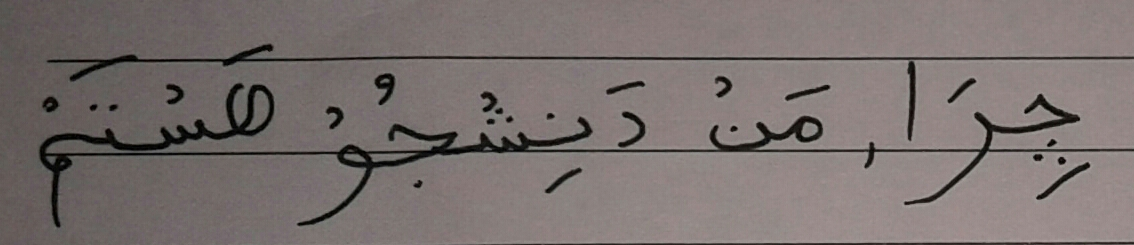 چِرَا, مَنْ دَنِشْجُوْ هَسْتَمْ